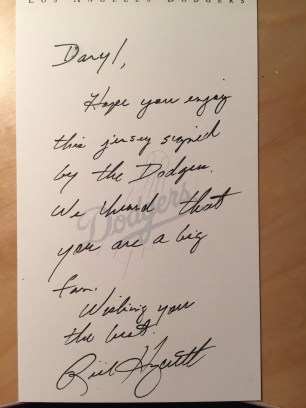 LOS ANGELES DODGERS
Daryl,
Hope you enjoy
this jersey signed
by the Dodgers.
We heard that
Dodgers
you are a big
fan.
Wishing you
the best!